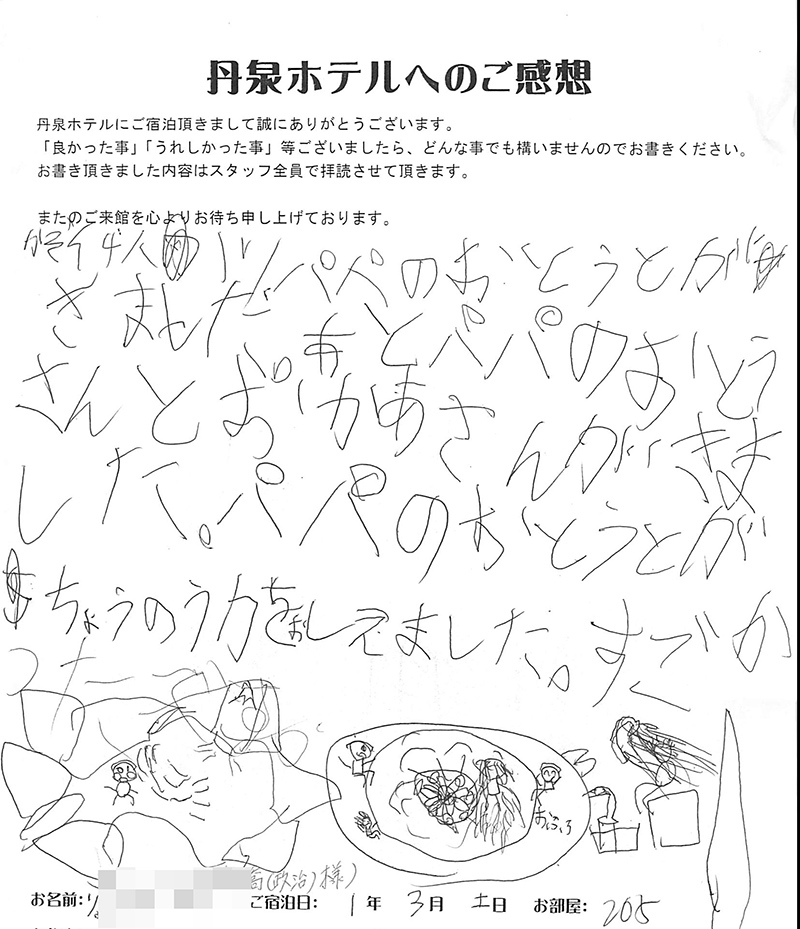 丹泉ホテルへのご感想
丹泉ホテルにご宿泊頂きまして誠にありがとうございます。
「良かった事」「うれしかった事」等ございましたら、どんな事でも構いませんのでお書きください。
お書き頂きました内容はスタッフ全員で拝読させて頂きます。
またのご来館を心よりお待ち申し上げております。
かぞく4人 パパのおとうとが
きましただ あとパパのおとう
さんとおかあさんがきま
した。パパのおとうとが
ちょうのう力をおしえてました。すごか
った
おふろ
(政治)様)
お名前: ご宿泊日: 1年 3月 土日 お部屋: 205